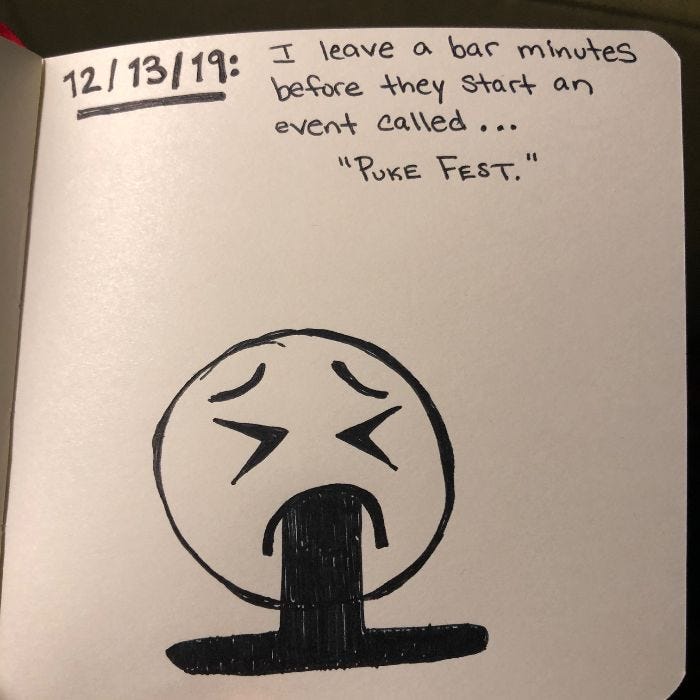 12/13/19: I leave a bar minutes
before they start an
event called...
"PUKE FEST."